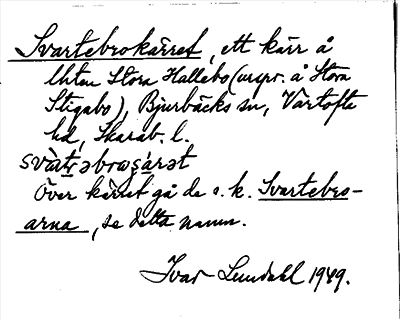 Svartebrokärret, ett kärr å
Uten Stora Hallebo (urspr. å Stora
Stigabo), Bjurbäcks sn, Vartofta
hd, Skarab. l.
svàʈəbrωɕärət
Över kärret gå de s. k. Svartebro-
arna, se detta namn.
Ivar Lundahl 1949.